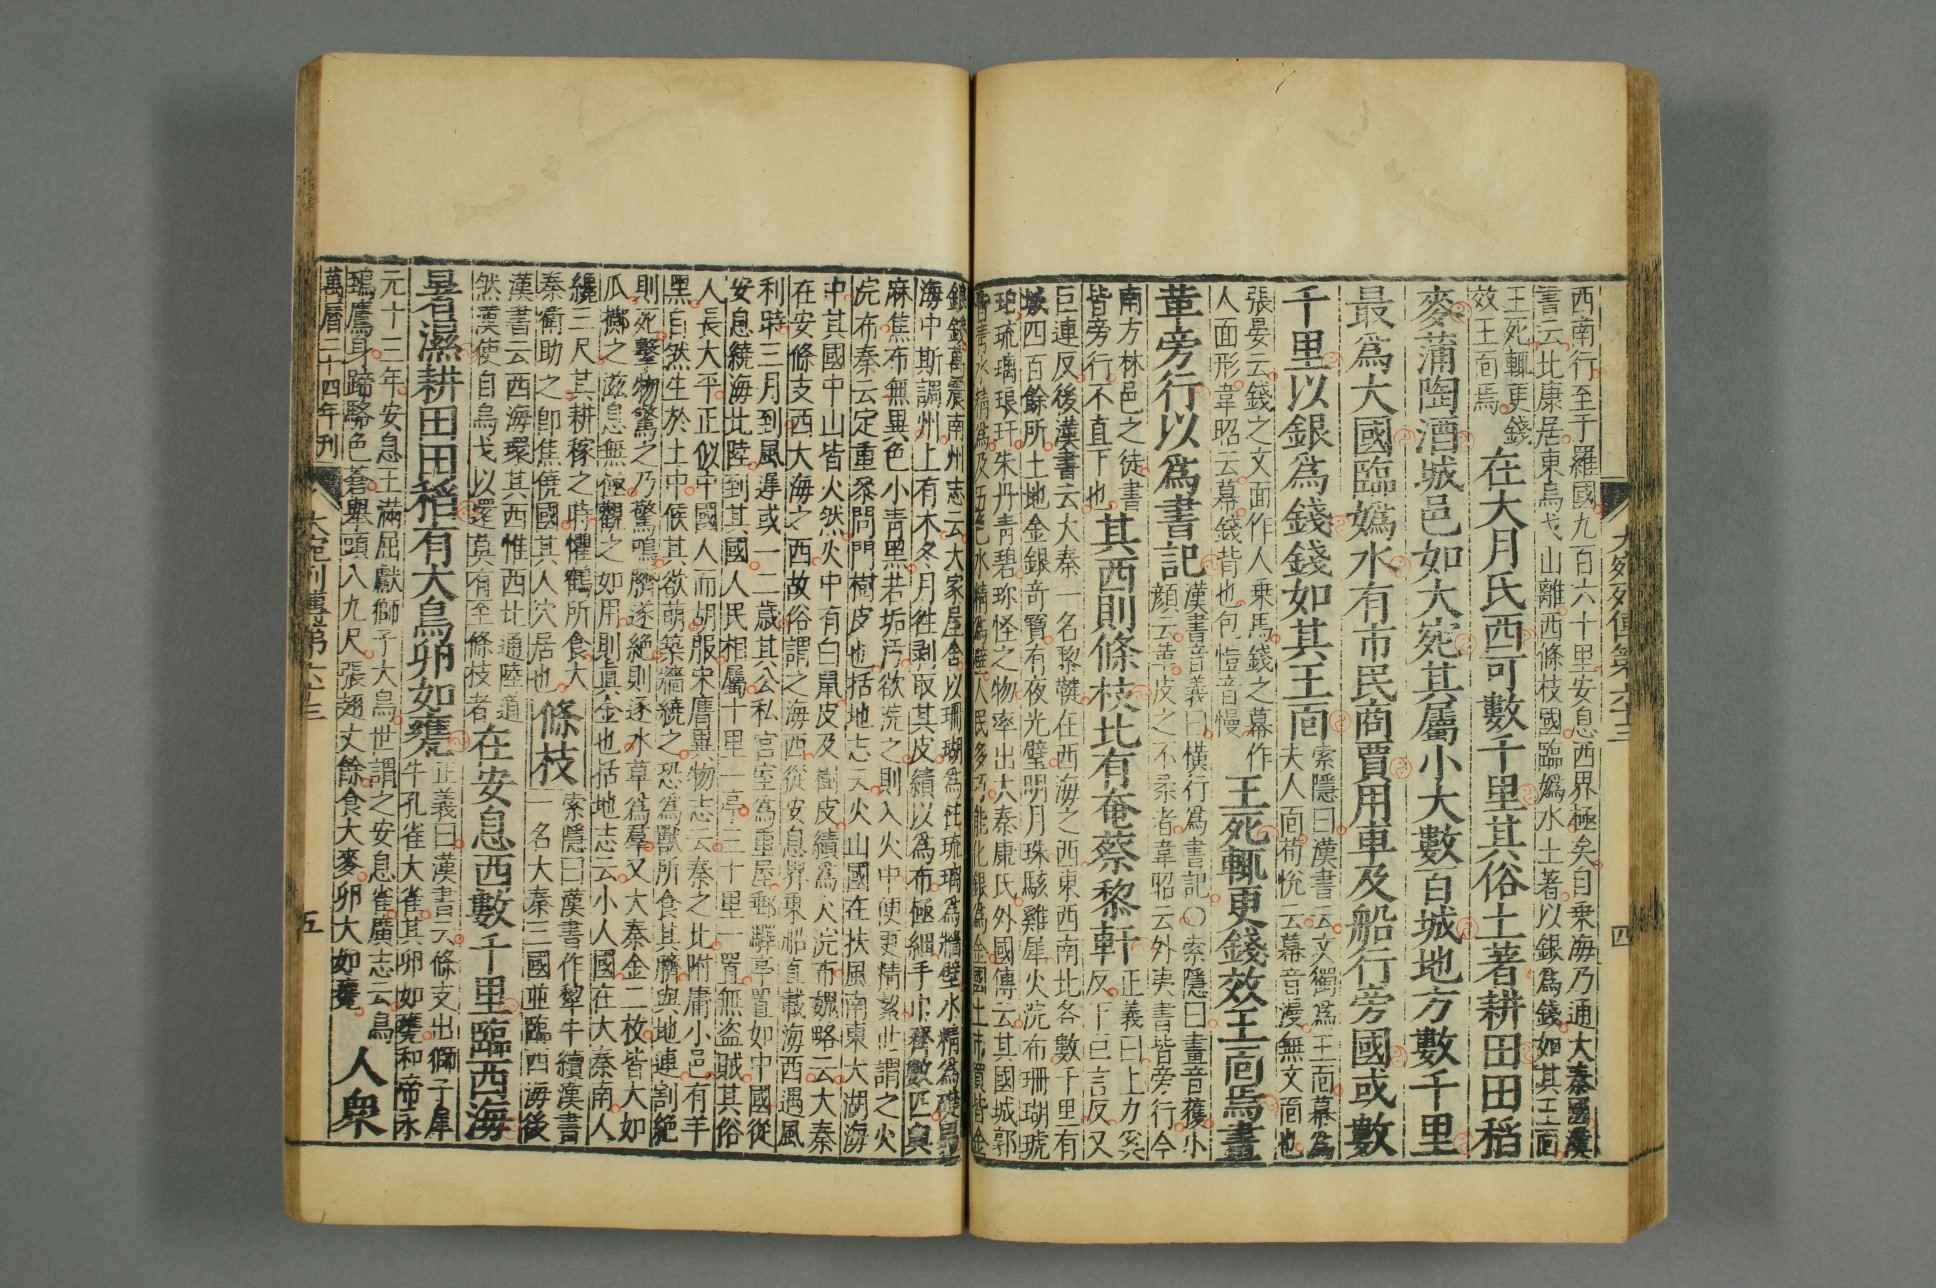 大宛列傳第六十三
四
西南行至于羅國九百六十里安息西界極矣自乘海乃通大秦國漢
書云北康居東烏弋山離西條枝國臨媯水土著以銀爲錢如其王面
王死輒更錢
效王面焉
在大月氏西可數千里其俗土著耕田田稻
麥蒲陶酒城邑如大宛其屬小大數百城地方數千里
最爲大國臨嬀水有市民商賈用車及船行旁國或數
千里以銀爲錢錢如其王面
索隱曰漢書云文獨爲王面幕爲
夫人面荀悅云幕音漫無文面也
張晏云錢之文面作人乗馬錢之幕作
人面形韋昭云幕錢背也包愷音慢
王死輒更錢效王面焉畫
革旁行以爲書記
漢書音義曰橫行爲書記〇索隱曰畫音獲小
顏云革皮之不柔者韋昭云外夷書皆旁行今
南方林邑之徒書
皆旁行不直下也
其西則條枝北有奄蔡黎軒
正義曰上力奚
反下巨言反又
巨連反後漢書云大秦一名黎鞬在西海之西東西南北各數千里有
城四百餘所土地金銀奇寶有夜光璧明月珠駭雞犀火浣布珊瑚琥
珀琉璃琅玕朱丹青碧珍怪之物率出大秦康氏外國傳云其國城郭
皆青水精爲及五色水精爲壁人民多巧能化銀爲金國土市買皆金
銀錢萬震南州志云大家屋舍以珊瑚爲柱琉璃爲牆壁水精爲礎舄
海中斯調州上有木冬月往剥取其皮績以爲布極細手巾齊數匹與
麻焦布無異色小青黑若垢汚欲浣之則入火中便更精絜世謂之火
浣布秦云定重參問門樹皮也括地志云火山國在扶風南東大湖海
中其國中山皆火然火中有白鼠皮及樹皮績爲火浣布魏略云大秦
在安條支西大海之西故俗謂之海西從安息界東船直截海西遇風
利時三月到風遲或一二歲其公私宮室爲重屋郵驛亭置如中國從
安息繞海北陸到其國人民相屬十里一亭三十里一置無盗賊其俗
人長大平正似中國人而胡服宋膺異物志云秦之北附庸小邑有羊
羔自然生於土中候其欲萌築牆繞之恐爲獸所食其臍與地連割絶
則死擊物驚之乃驚鳴臍遂絶則逐水草爲羣又大秦金二枚皆大如
瓜擲之滋息無極觀之如用則真金也括地志云小人國在大秦南人
纔三尺其耕稼之時懼鶴所食大
秦衛助之即焦僥國其人穴居也
條枝
索隱曰漢書作犂牛續漢書
一名大秦三國並臨西海後
漢書云西海環其西惟西北通陸道
然漢使自烏弋以還莫有至條枝者
在安息西數千里臨西海
暑濕耕田田稻有大鳥卵如甕
正義曰漢書云條支出獅子犀
牛孔雀大雀其卵如甕和帝永
元十三年安息王滿屈獻獅子大鳥世謂之安息雀廣志云鳥
鵄鷹身蹄駱色蒼舉頭八九尺張翅丈餘食大麥卵大如甕
人衆
萬曆二十四年刊
大宛列傳第六十三
五